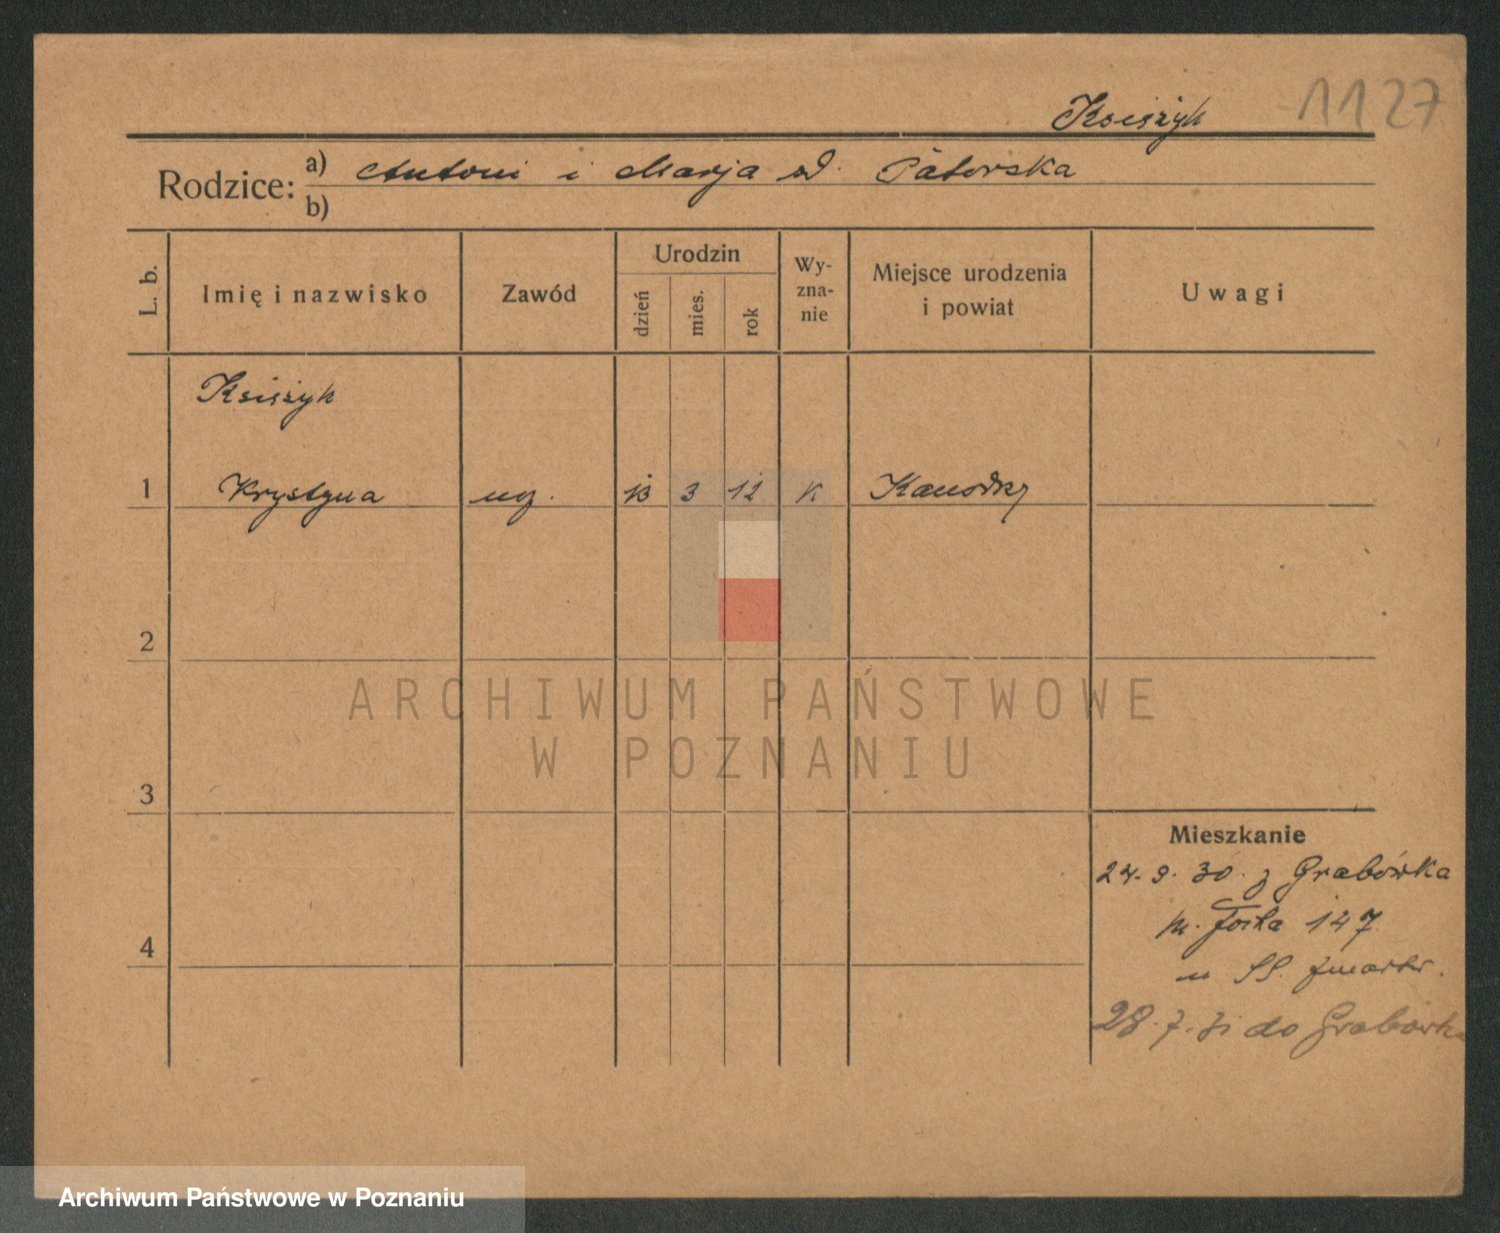 Księżyk 1127
Rodzice: a) Antoni i Marja od. Patorska
b)
L. b. Imię i nazwisko Zawód Urodzin dzień mies. rok Wyznanie Miejsce urodzenia i powiat Uwagi
Księżyk
1 Krystyna ucz. 13 3 12 K
2
ARCHIWUM PAŃSTWOWE
W POZNANIU
3
Mieszkanie
24. 9. 30. z Grabówka
m. Forta 147
4
u SS. zmartw.
28. 7. 31 do Grabówka
Archiwum Państwowe w Poznaniu